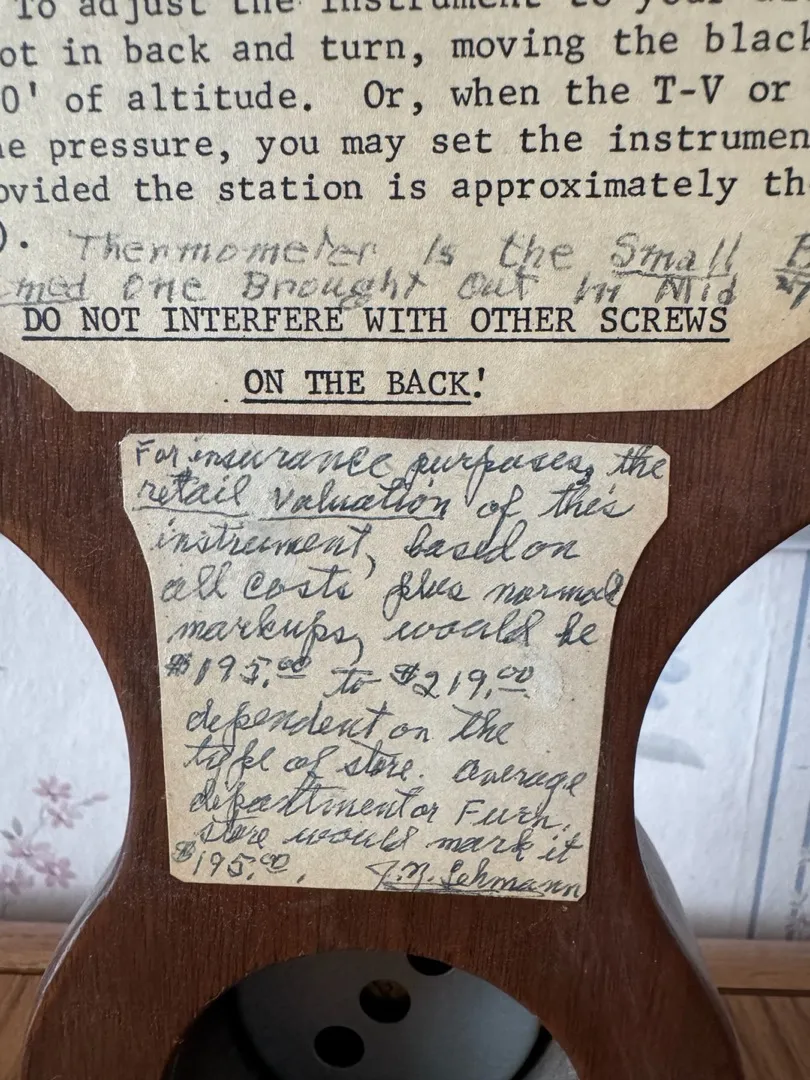 To adjust the instrument to your
ot in back and turn, moving the black
0' of altitude. Or, when the T-V or
e pressure, you may set the instrumen
ovided the station is approximately th
). Thermometer Is the Small
med One Brought Out In Mid
DO NOT INTERFERE WITH OTHER SCREWS
ON THE BACK!
For insurance purposes, the
retail valuation of this
instrument, based on
all costs plus normal
markups, would be
$195.00 to $219.00
dependent on the
type of store. Average
department or Furn.
store would mark it
$195.00. J. N. Lehmann